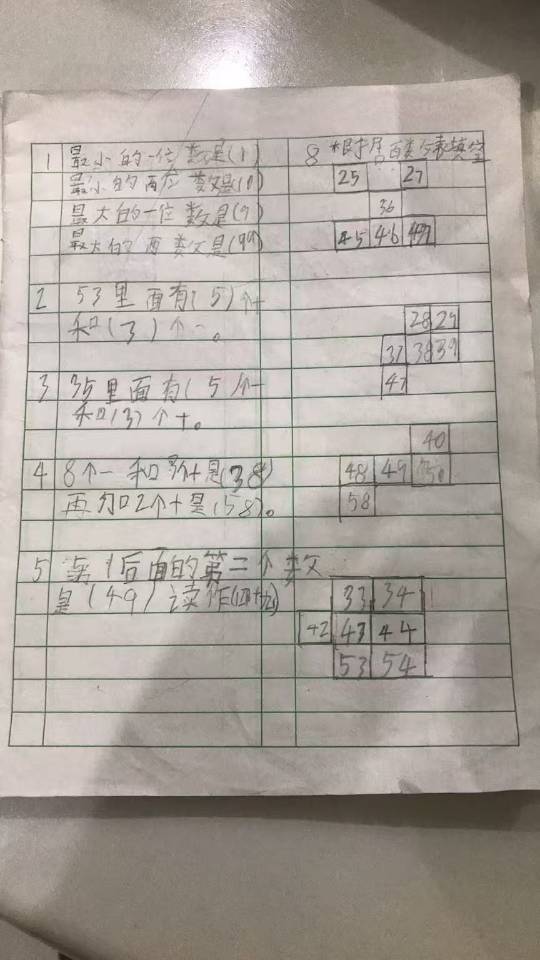 1 最小的一位数是(1)
最小的两位数是(10)
最大的一位数是(9)
最大的两数是(99)
2 53里面有(5)个十
和(3)个一。
3 35里面有(5)个一
和(3)个十。
4 8个一和3个十是(38)
再加2个十是(58)。
5 后面的第二个数
是(49)读作(四十九)
8 百数表填空
25 27
36
45 46 47
28 29
37 38 39
47
40
48 49 50
58
33 34
42 43 44
53 54